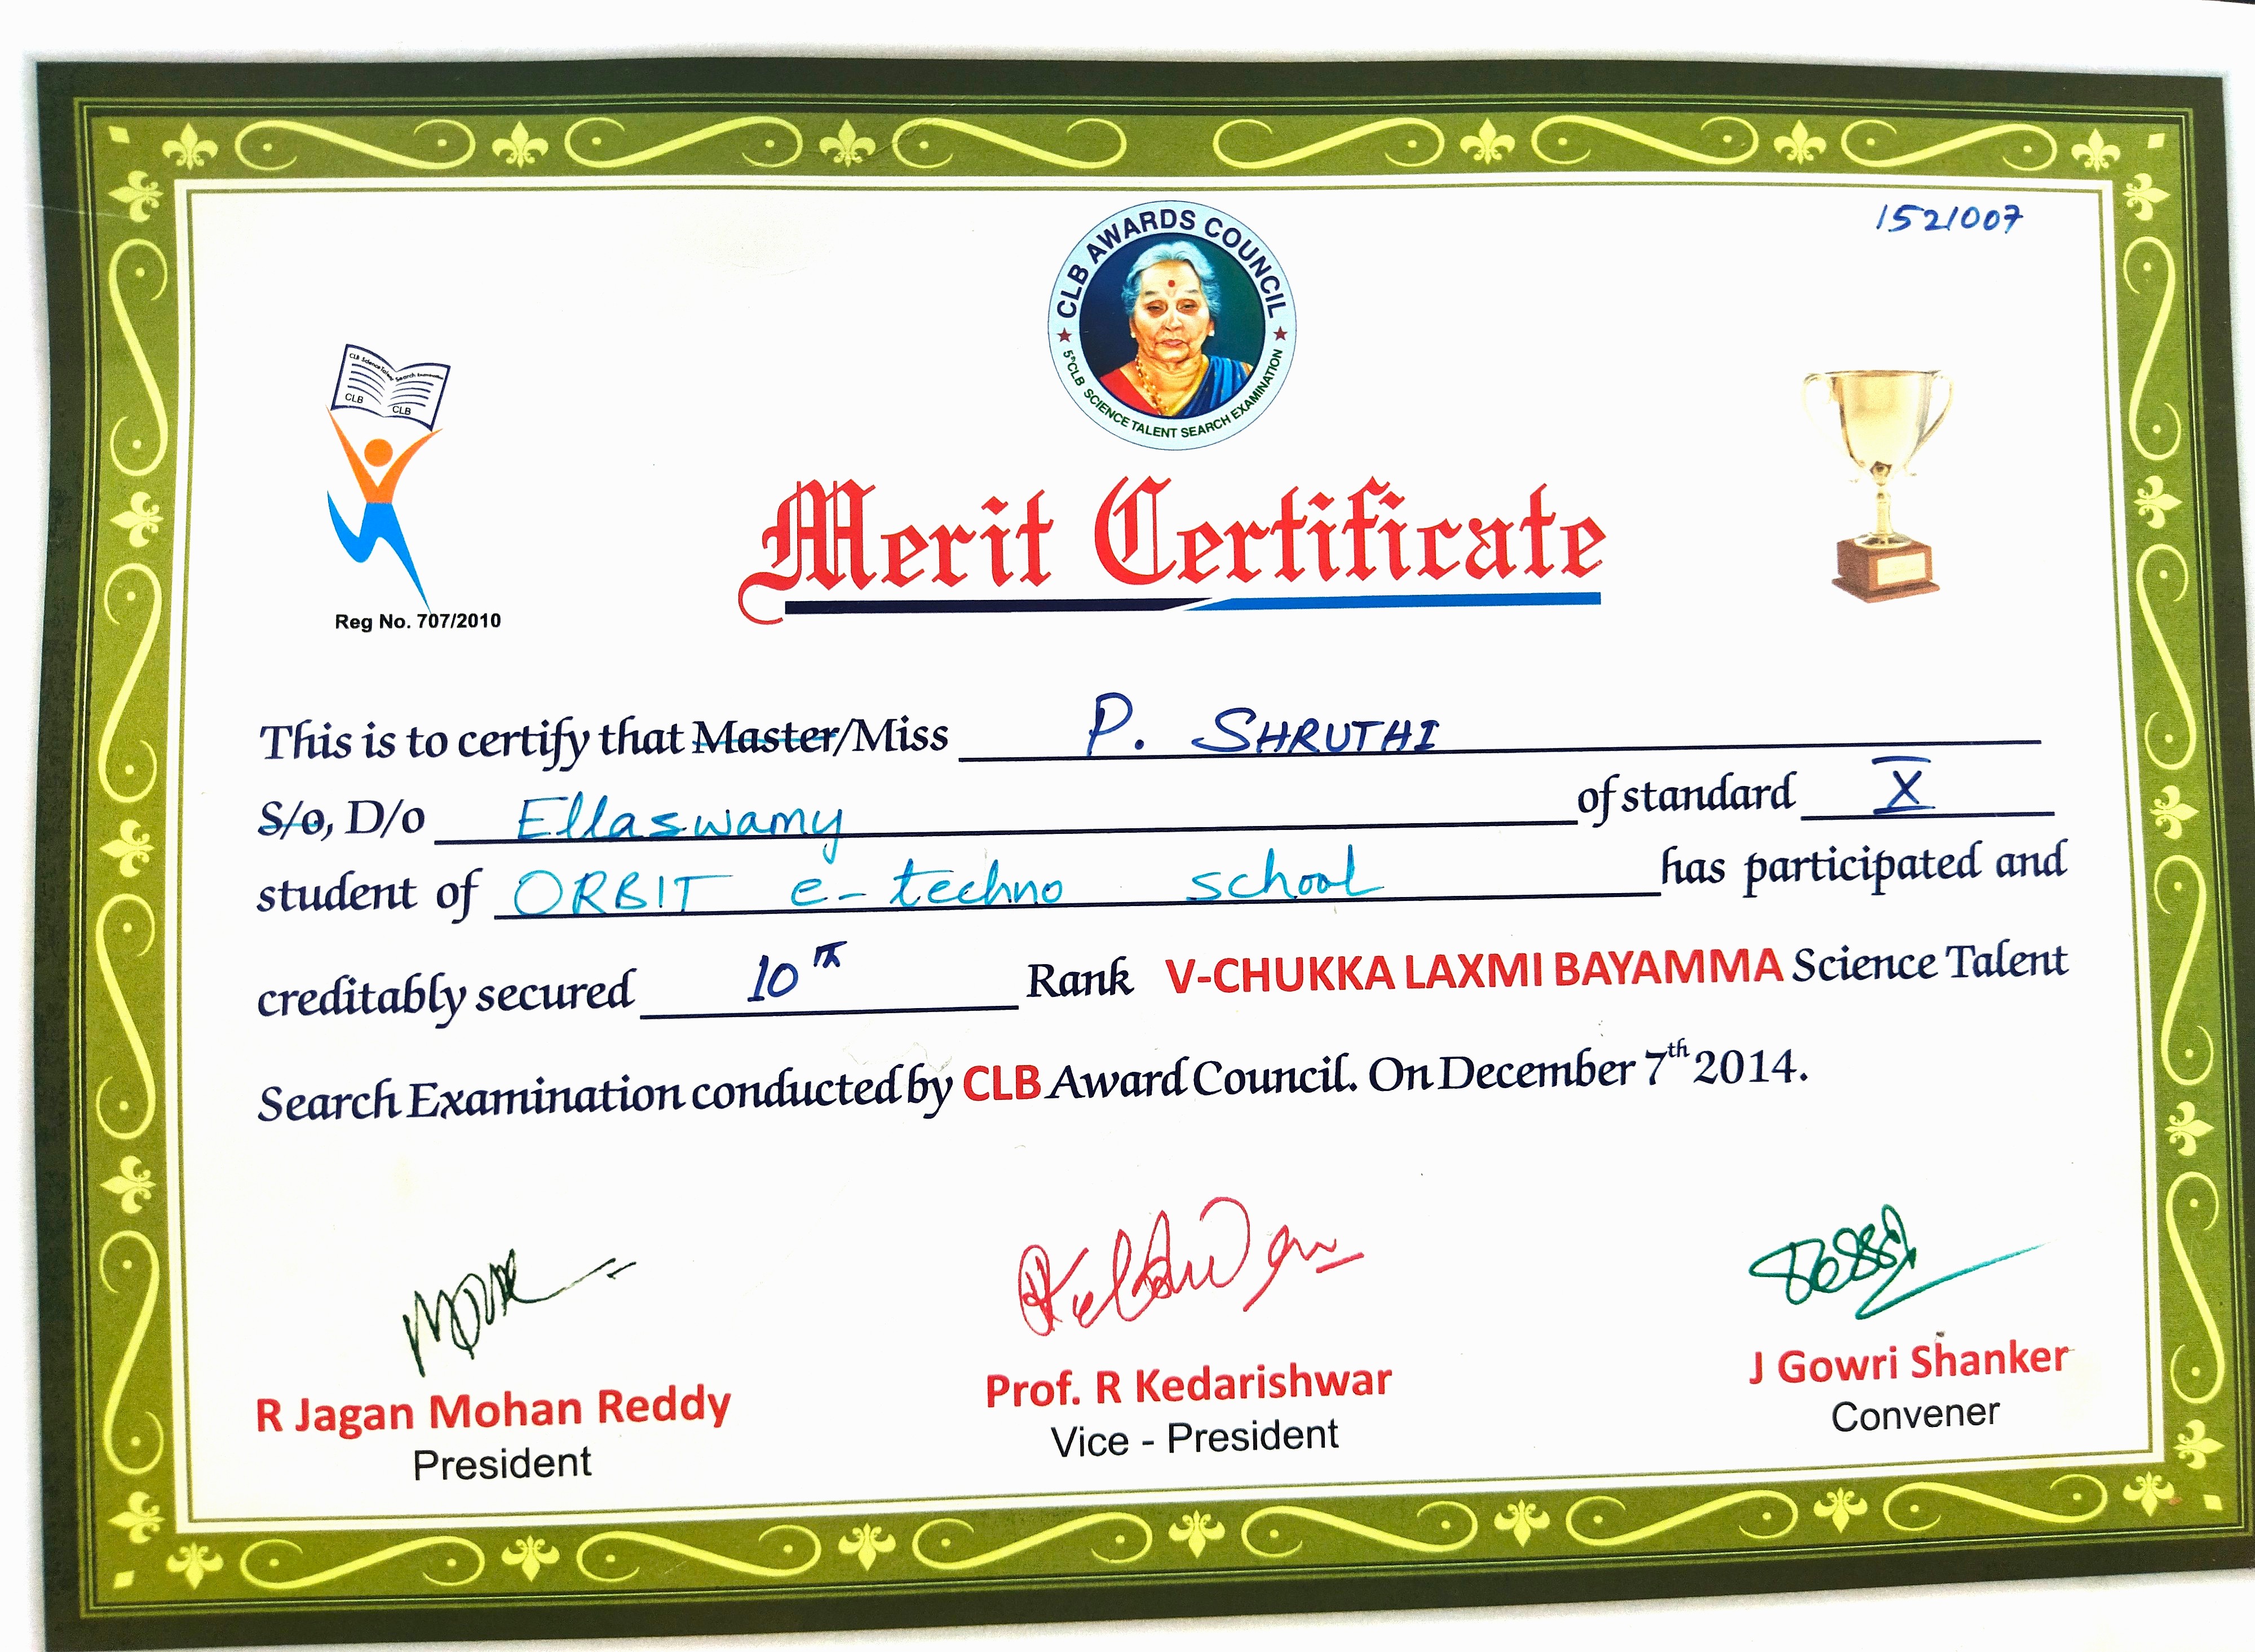 1521007
CLB AWARDS COUNCIL
5th CLB SCIENCE TALENT SEARCH EXAMINATION
CLB Science Talent Search Examination
CLB CLB
Reg No. 707/2010
Merit Certificate
This is to certify that Master/Miss P. SHRUTHI
S/o, D/o Ellaswamy of standard X
student of ORBIT e-techno school has participated and
creditably secured 10th Rank V-CHUKKA LAXMI BAYAMMA Science Talent
Search Examination conducted by CLB Award Council. On December 7th 2014.
R Jagan Mohan Reddy Prof. R Kedarishwar J Gowri Shanker
President Vice - President Convener